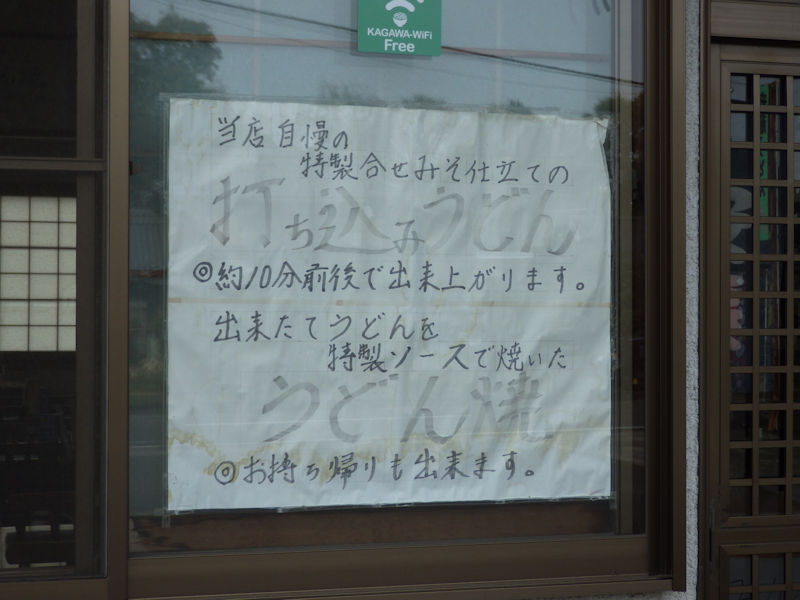 KAGAWA-WiFi
Free
当店自慢の
特製合せみそ仕立ての
打ち込みうどん
◎約10分前後で出来上がります。
出来たてうどんを
特製ソースで焼いた
うどん焼
◎お持ち帰りも出来ます。